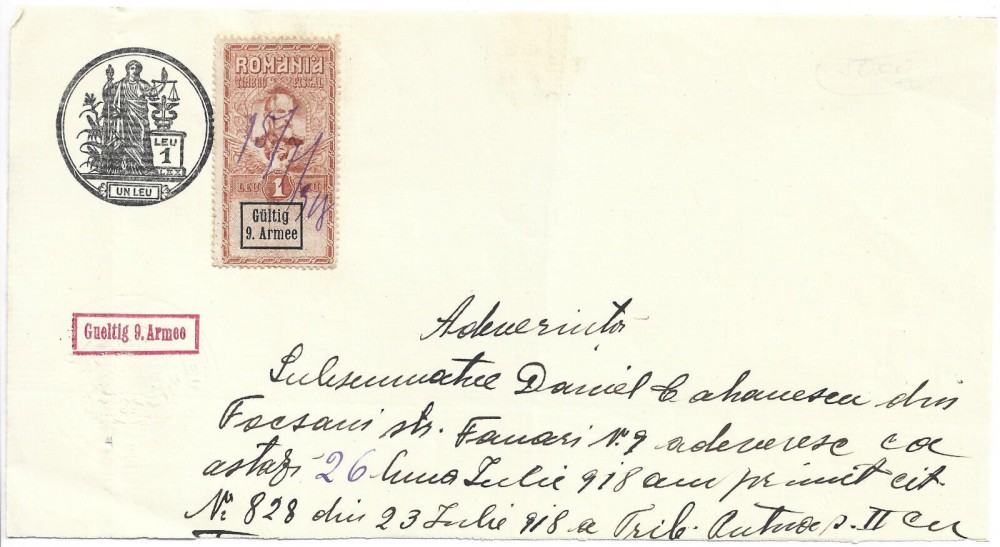 LEU
1
LEX
UN LEU
ROMÂNIA
TIMBRU FISCAL
LEU 1 LEU
Gültig
9. Armee
Gueltig 9. Armee
Adeverință
Subsemnatul Daniel Cahanescu din
Focsani str. Fanari No. 9 adeveresc ca
astazi 26 luna Iulie 918 am primit cit.
No. 828 din 23 Iulie 918 a Trib. Putna s. II cu